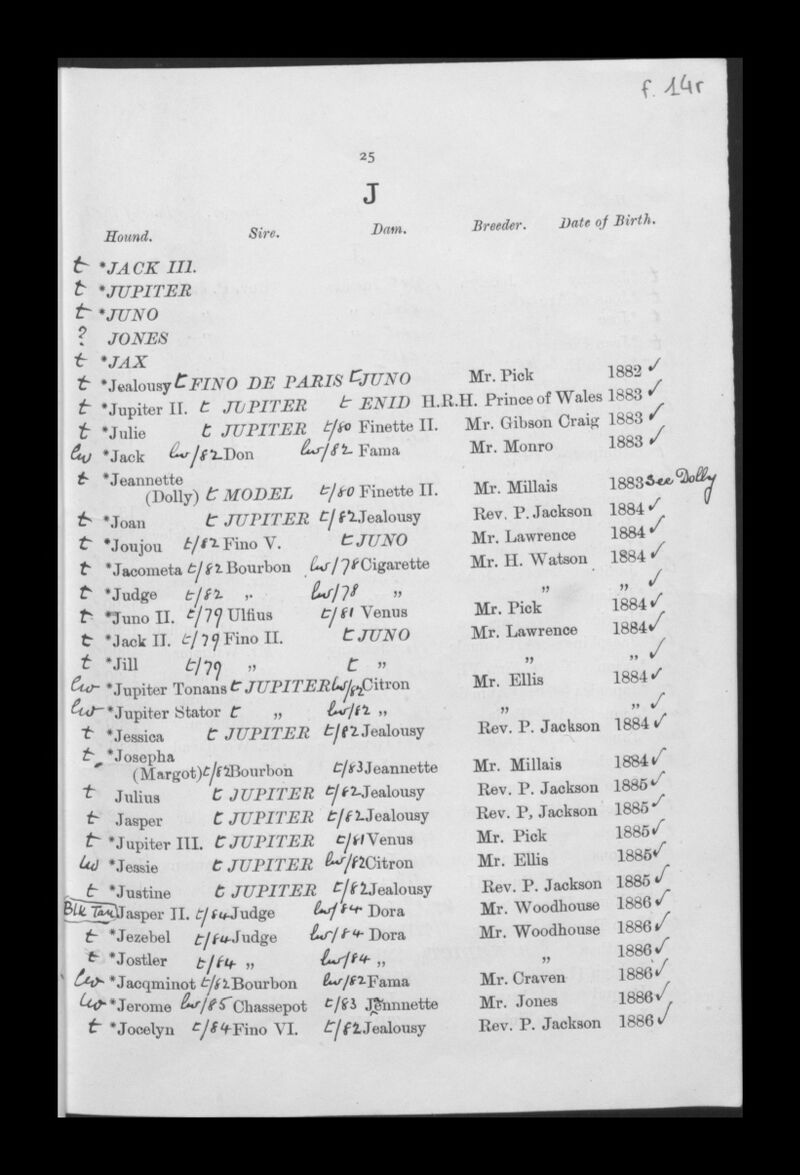 f. 14r
25
J
Hound. Sire. Dam. Breeder. Date of Birth.
t *JACK III.
t *JUPITER
t *JUNO
? JONES
t *JAX
t *Jealousy t FINO DE PARIS t JUNO Mr. Pick 1882 ✓
t *Jupiter II. t JUPITER t ENID H.R.H. Prince of Wales 1883 ✓
t *Julie t JUPITER t/80 Finette II. Mr. Gibson Craig 1883 ✓
lw *Jack lw/82 Don lw/82 Fama Mr. Monro 1883 ✓
t *Jeannette
(Dolly) t MODEL t/80 Finette II. Mr. Millais 1883 see Dolly
t *Joan t JUPITER t/82 Jealousy Rev. P. Jackson 1884 ✓
t *Joujou t/82 Fino V. t JUNO Mr. Lawrence 1884 ✓
t *Jacometa t/82 Bourbon lw/78 Cigarette Mr. H. Watson 1884 ✓
t *Judge t/82 ,, lw/78 ,, ,, ,, ✓
t *Juno II. t/79 Ulfius t/81 Venus Mr. Pick 1884 ✓
t *Jack II. t/79 Fino II. t JUNO Mr. Lawrence 1884 ✓
t *Jill t/79 ,, t ,, ,, ,, ✓
lw *Jupiter Tonans t JUPITER lw/82 Citron Mr. Ellis 1884 ✓
lw *Jupiter Stator t ,, lw/82 ,, ,, ,, ✓
t *Jessica t JUPITER t/82 Jealousy Rev. P. Jackson 1884 ✓
t *Josepha
(Margot) t/82 Bourbon t/83 Jeannette Mr. Millais 1884 ✓
t Julius t JUPITER t/82 Jealousy Rev. P. Jackson 1885 ✓
t Jasper t JUPITER t/82 Jealousy Rev. P, Jackson 1885 ✓
t *Jupiter III. t JUPITER t/81 Venus Mr. Pick 1885 ✓
lw *Jessie t JUPITER lw/82 Citron Mr. Ellis 1885 ✓
t *Justine t JUPITER t/82 Jealousy Rev. P. Jackson 1885 ✓
Blk Tan Jasper II. t/84 Judge lw/84 Dora Mr. Woodhouse 1886 ✓
t *Jezebel t/84 Judge lw/84 Dora Mr. Woodhouse 1886 ✓
t *Jostler t/84 ,, lw/84 ,, ,, 1886 ✓
lw *Jacqminot t/82 Bourbon lw/82 Fama Mr. Craven 1886 ✓
lw *Jerome lw/85 Chassepot t/83 Jennnette Mr. Jones 1886 ✓
t *Jocelyn t/84 Fino VI. t/82 Jealousy Rev. P. Jackson 1886 ✓